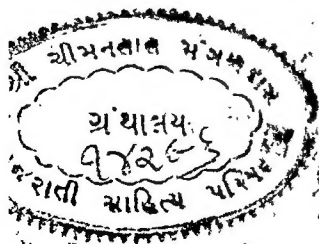 ચીમનલાલ મંગળદાસ
ગ્રંથાલય
૧૪૨૯૬
ગુજરાતી સાહિત્ય પરિષદ